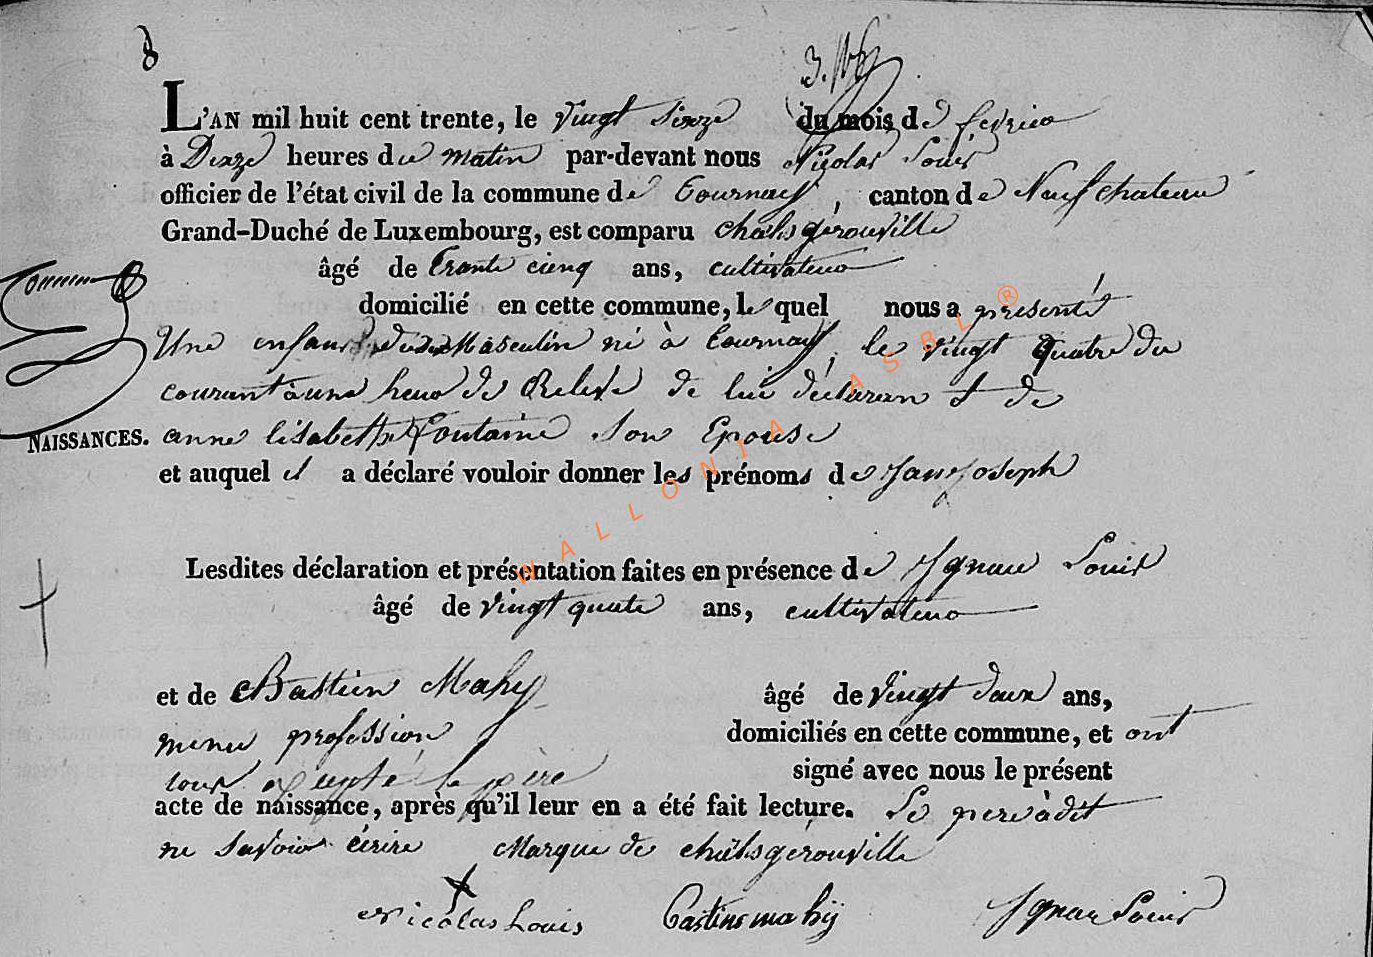 8
L'AN mil huit cent trente, le vingt sixze du mois de fevrier
à Dixze heures du matin par-devant nous Nicolas Louis
officier de l'état civil de la commune de Tournay, canton de Neufchateau
Grand-Duché de Luxembourg, est comparu Chals gérouville
âgé de trante cienq ans, cultivateur
domicilié en cette commune, lequel nous a presenté
Une enfant du Masculin né à Tournay, le vingt quatre du
courant à une heur de de lui déclarant & de
NAISSANCES. anne lisabette fontaine son Epouse
et auquel il a déclaré vouloir donner les prénoms de Jan joseph
Lesdites déclaration et présentation faites en présence de Ignace Louis
âgé de vingt quate ans, cultivateur
et de Bastien Mahy âgé de vingt deux ans,
meme profession domiciliés en cette commune, et ont
tous le père signé avec nous le présent
acte de naissance, après qu'il leur en a été fait lecture. Le pere à dit
ne savoir écrire Marque de Chals gerouville
Nicolas Louis Bastien mahy Ignace Louis
WALLONIA ASBL ®